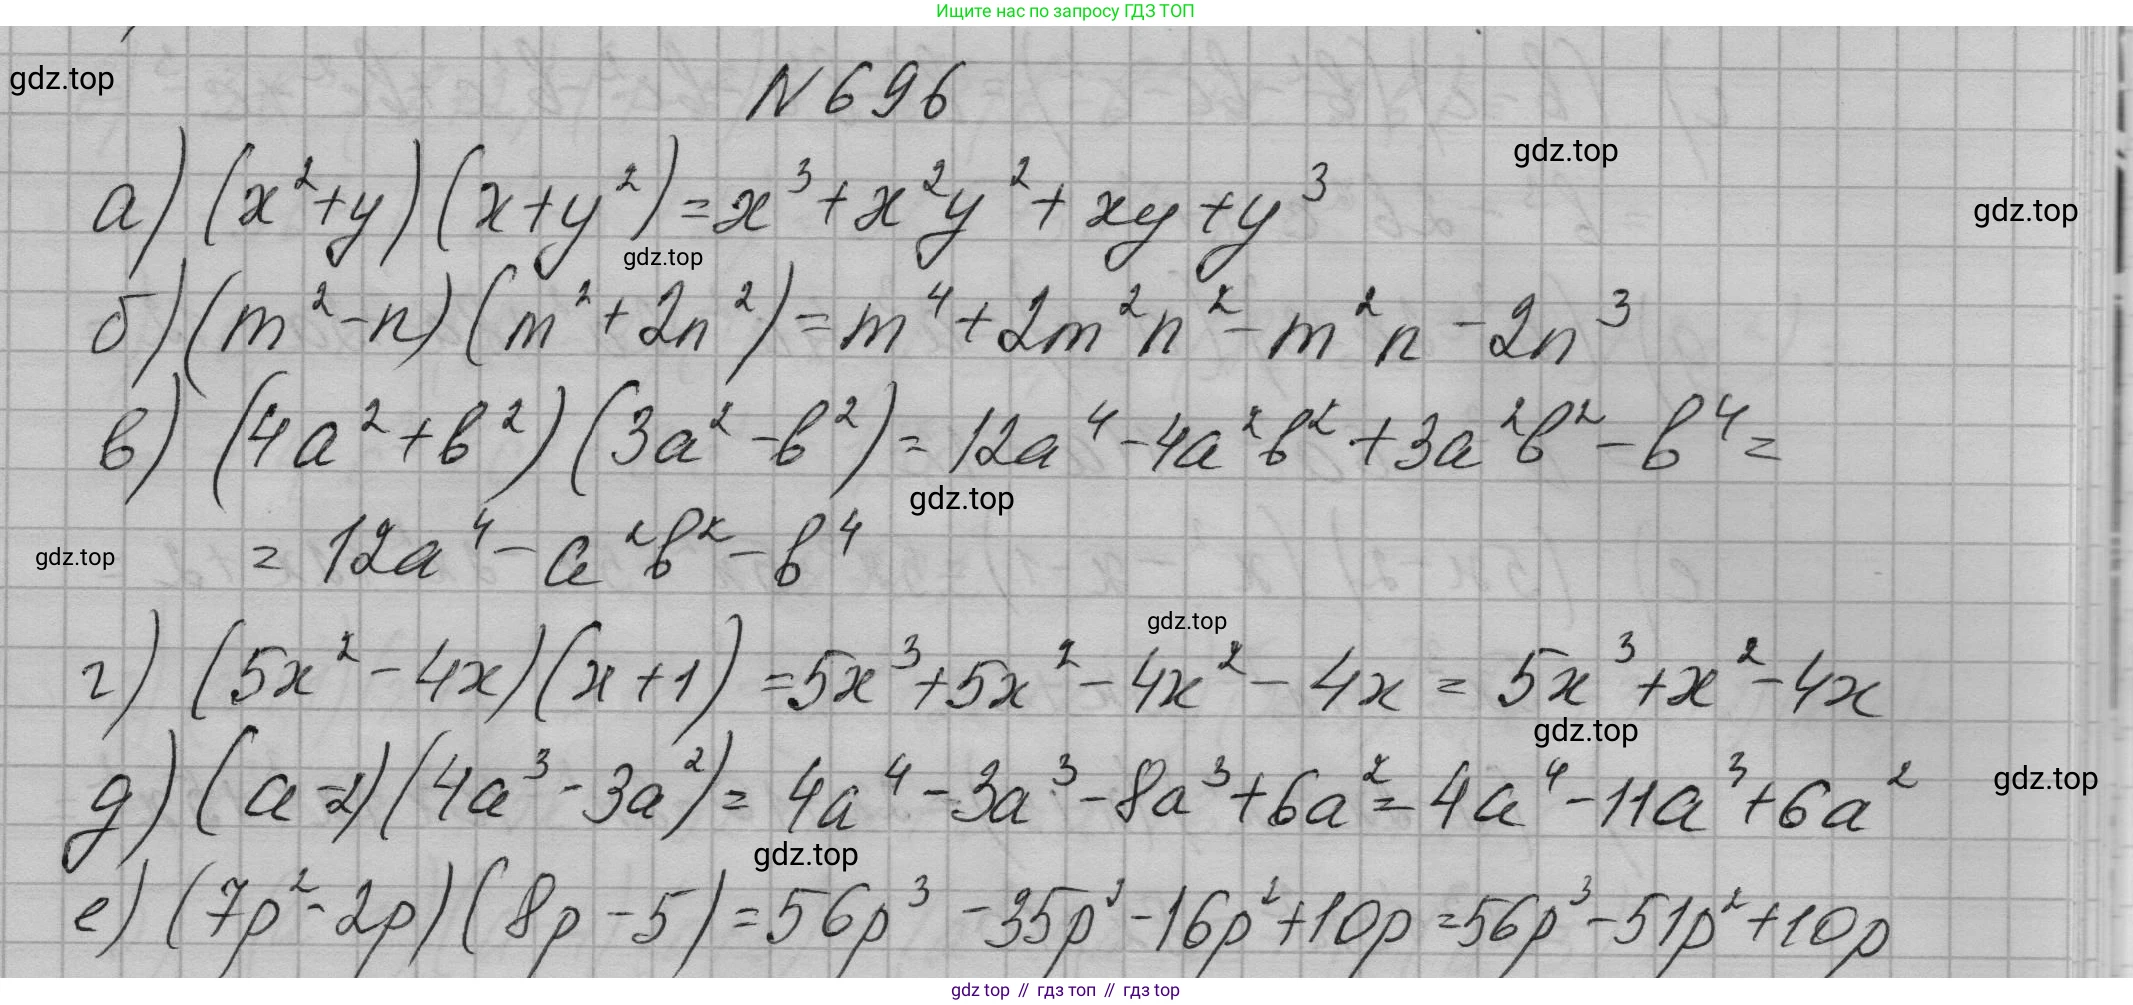 Ищите нас по запросу ГДЗ ТОП
N 696
gdz.top
gdz.top
а) (x²+y)(x+y²)=x³+x²y²+xy+y³
gdz.top
gdz.top
б) (m²-n)(m²+2n²)=m⁴+2m²n²-m²n-2n³
в) (4a²+в²)(3a²-в²)=12a⁴-4a²в²+3a²в²-в⁴=
gdz.top
=12a⁴-a²в²-в⁴
gdz.top
gdz.top
г) (5x²-4x)(x+1)=5x³+5x²-4x²-4x=5x³+x²-4x
gdz.top
д) (a-2)(4a³-3a²)=4a⁴-3a³-8a³+6a²=4a⁴-11a³+6a²
gdz.top
gdz.top
е) (7p²-2p)(8p-5)=56p³-35p²-16p²+10p=56p³-51p²+10p
gdz top // гдз топ // гдз top